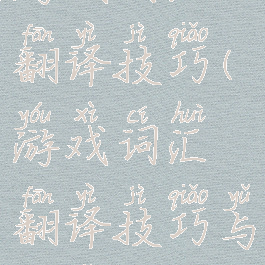 fān yì jì qiǎo
翻译技巧(
yóu xì cí huì
游戏词汇
fān yì jì qiǎo yǔ
翻译技巧与